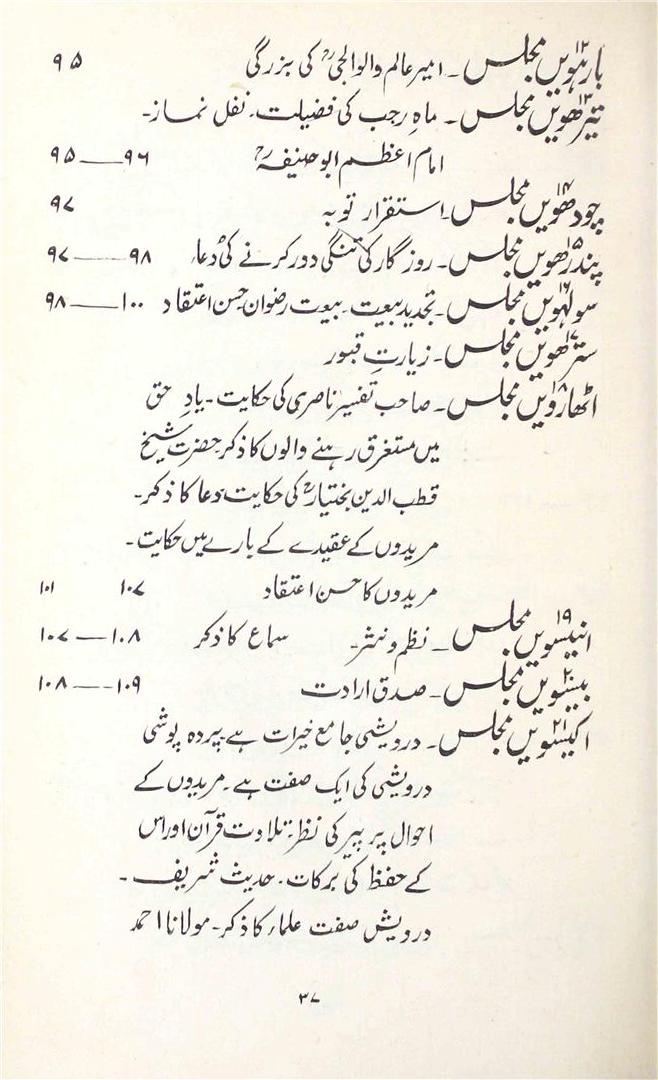 بارہویں۱۲ مجلس ۔ امیر عالم والوالجیؒ کی بزرگی ۹۵
تیرھویں۱۳ مجلس ۔ ماہِ رجب کی فضیلت۔ نفل نماز۔
امام اعظم ابو حنیفہؒ ۹۶—۹۵
چودھویں۱۴ مجلس۔ استقرار توبہ ۹۷
پندرھویں۱۵ مجلس۔ روزگار کی تنگی دور کرنے کی دعاء ۹۸—۹۷
سولہویں۱۶ مجلس۔ تجدید بیعت۔ بیعت رضوان حسن اعتقاد ۱۰۰—۹۸
سترھویں۱۷ مجلس۔ زیارتِ قبور
اٹھارویں۱۸ مجلس۔ صاحب تفسیر ناصری کی حکایت۔ یادِ حق
میں مستغرق رہنے والوں کا ذکر۔ حضرت شیخ
قطب الدین بختیارؒ کی حکایت۔ دعا کا ذکر۔
مریدوں کے عقیدے کے بارے میں حکایت۔
مریدوں کا حسن اعتقاد ۱۰۷ ۱۰۱
انیسویں۱۹ مجلس ۔ نظم و نثر۔ سماع کا ذکر ۱۰۸—۱۰۷
بیسویں۲۰ مجلس۔ صدق ارادت ۱۰۹—۱۰۸
اکیسویں۲۱ مجلس۔ درویشی جامع خیرات ہے۔ پردہ پوشی
درویشی کی ایک صفت ہے۔ مریدوں کے
احوال پر پیر کی نظر۔ تلاوت قرآن اور اس
کے حفظ کی برکات۔ حدیث شریف ۔
درویش صفت علماء کا ذکر۔ مولانا احمد
۳۷